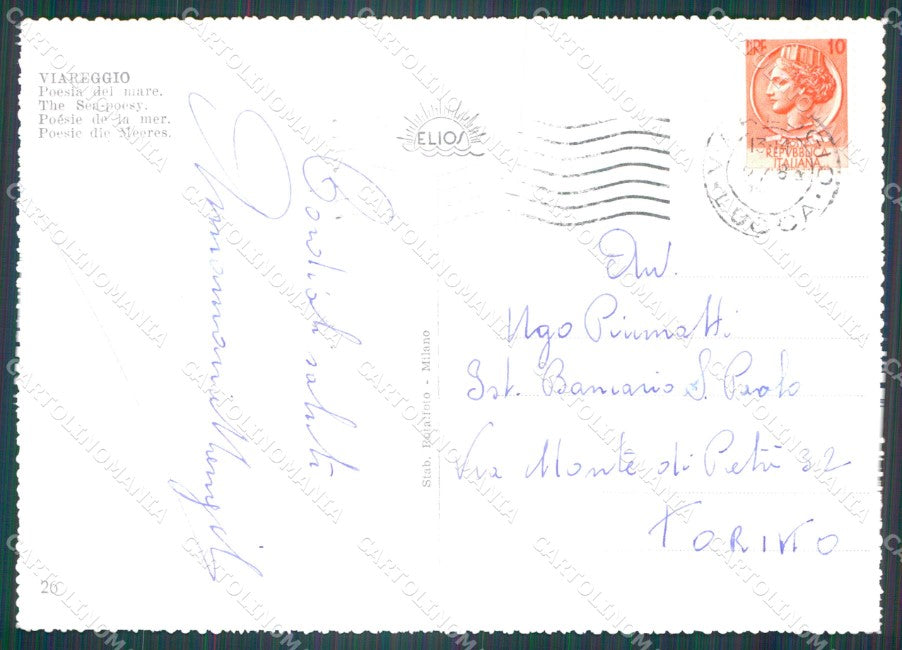 VIAREGGIO
Poesia del mare.
The Sea-poesy.
Poésie de la mer.
Poesie die Meeres.
ELIOS
LIRE 10
REPVBBLICA
ITALIANA
LUCCA
Cordiali saluti
Avv.
Ugo Piumatti
Ist. Bancario S. Paolo
Via Monte di Pietà 32
TORINO
Stab. - Milano
26
CARTOLINOMANIA